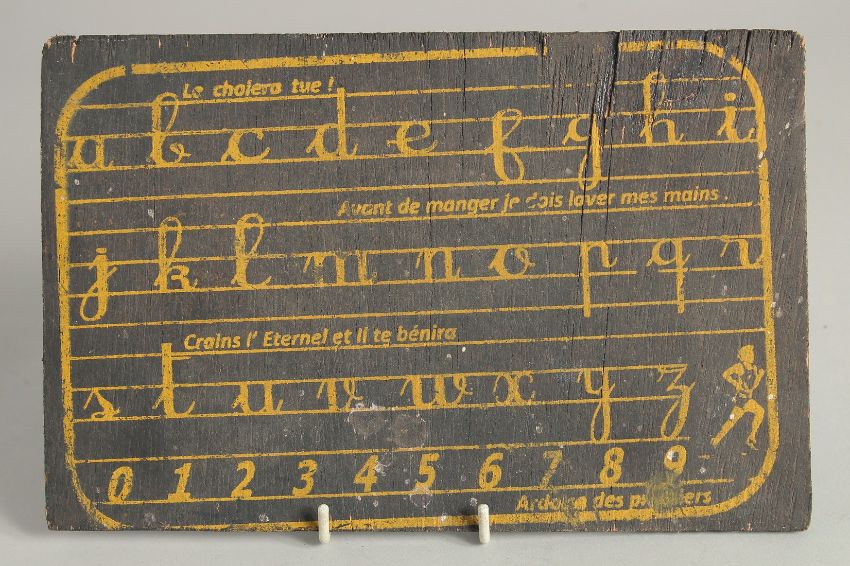 Le cholera tue !
a b c d e f g h i
Avant de manger je dois laver mes mains .
j k l m n o p q r
Crains l' Eternel et il te bénira
s t u v w x y z
0 1 2 3 4 5 6 7 8 9
Ardoise des premiers